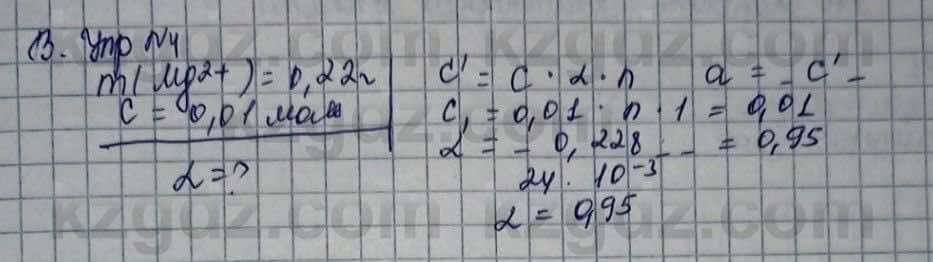 В. Упр №4
m(Mg2+) = 0,22г
C = 0,01 моль
α = ?
C' = C · α · n   α = C'
C, = 0,01 · n · 1 = 0,01
α = 0,228 = 0,95
24 · 10⁻³
α = 0,95
kzgdz.com